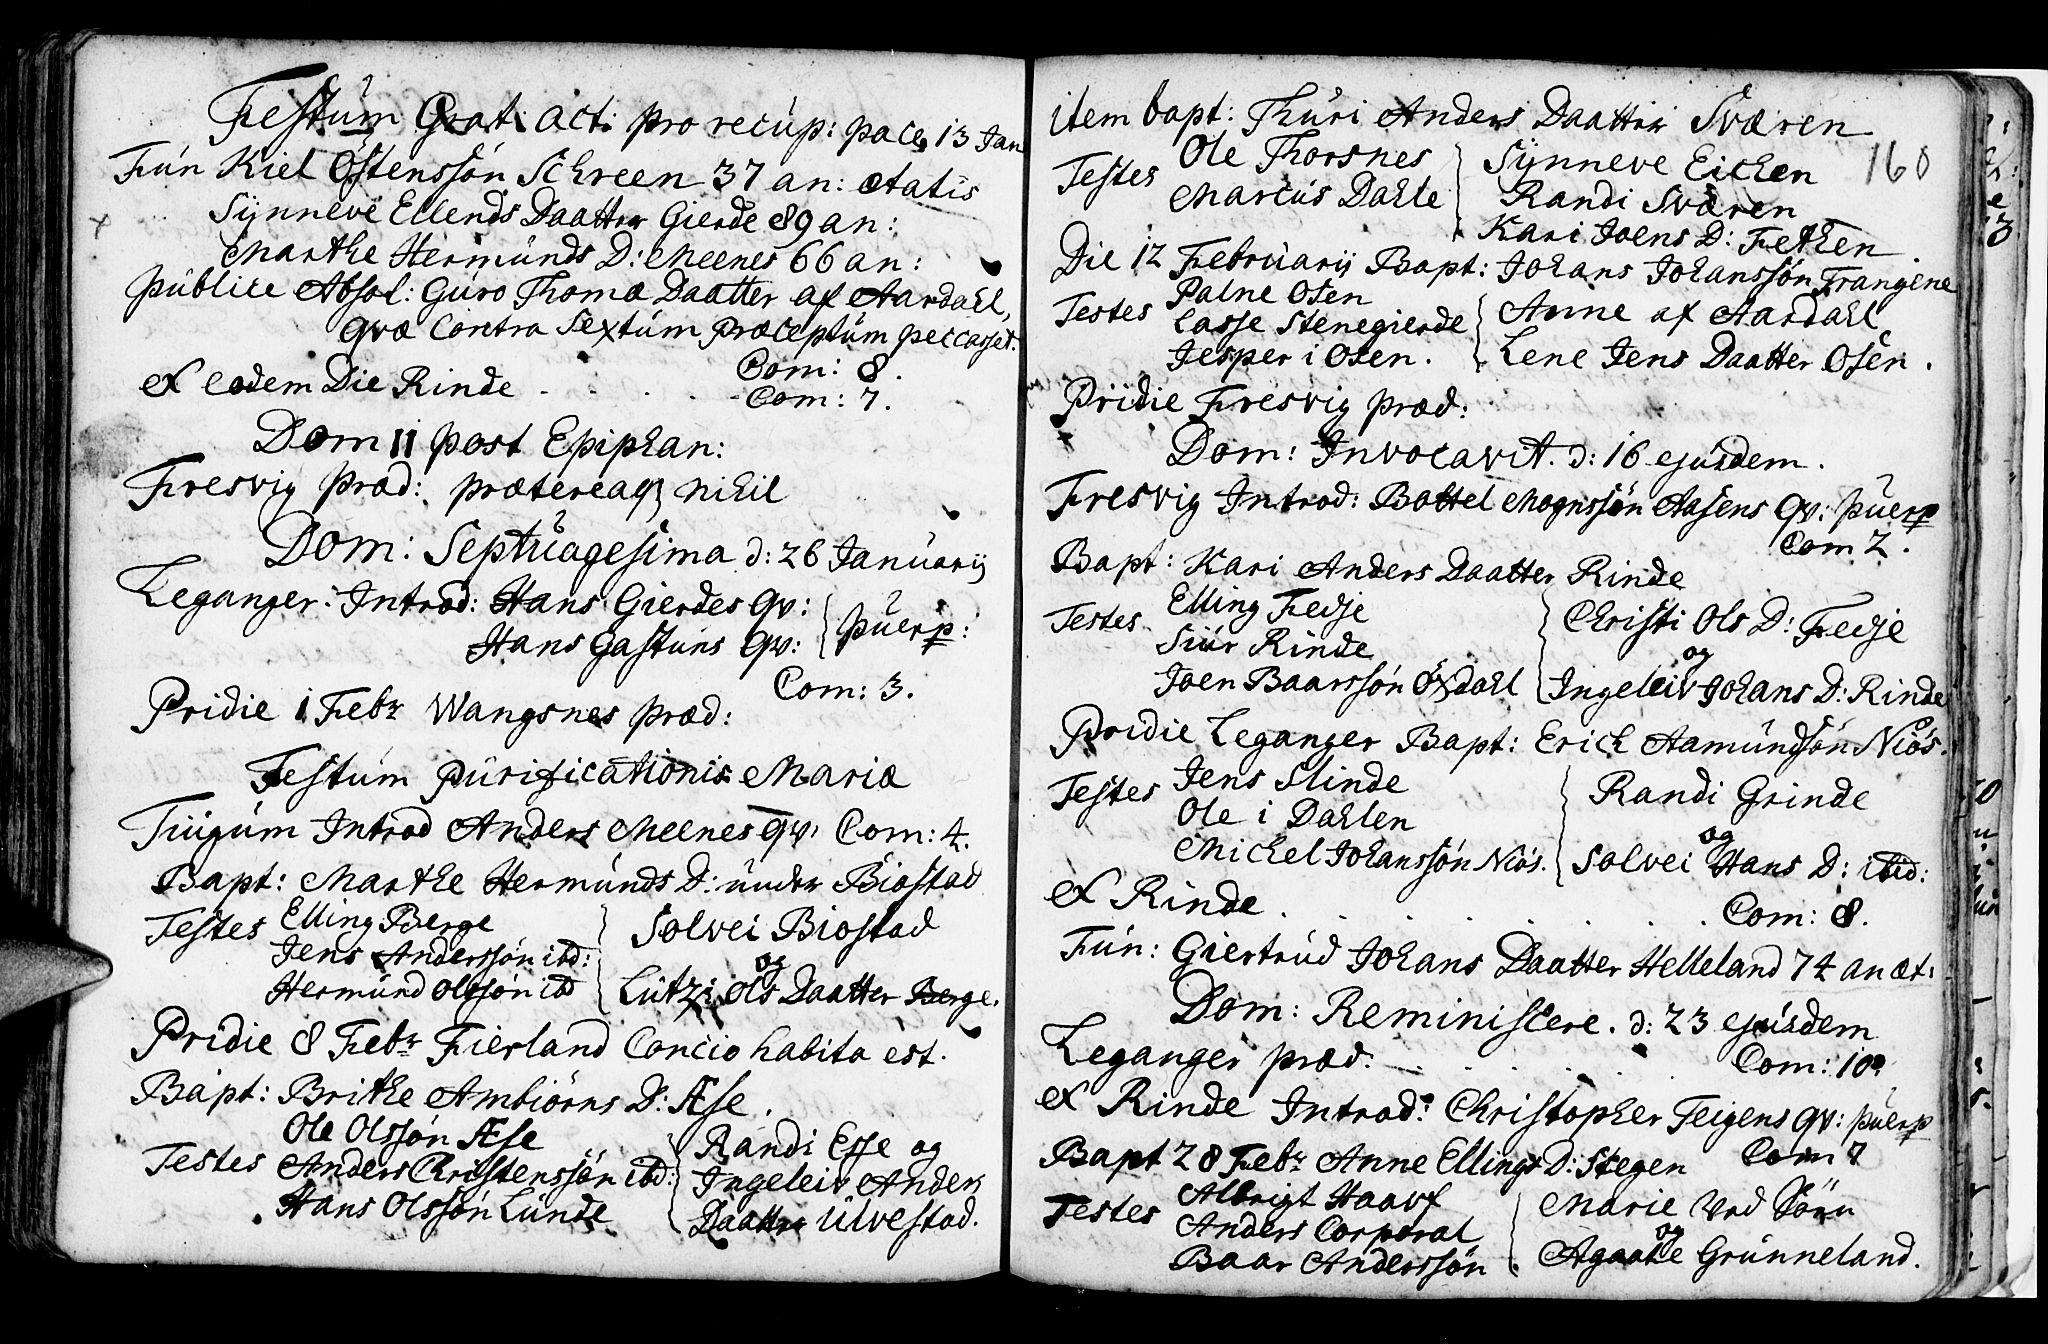 Festum Grat: act: pro recup: pace, 13 Jan
Fun Kiel Østenssøn Schreen 37 an: ætatis
Synneve Ellends Daatter Gierde 89 an:
Marthe Hermunds D: Meenes 66 an:
publice Absol: Guro Thomæ Daatter af Aardahl,
qvæ contra Sextum præceptum peccasset.
Com: 8.
& eodem Die Rinde . . . . . Com: 7.
Dom II post Epiphan:
Fresvig præd: prætereaq nihil
Dom: Septuagesima d: 26 Januarij
Leganger: Introd: Hans Gierdes qv:
Hans Gastuns qv: puerp:
Com: 3.
Pridie 1 Febr Wangsnes præd:
Festum Purificationis Mariæ
Tiugum Introd Anders Meenes qv: Com: 4.
Bapt: Marthe Hermunds D: under Biostad
Testes Elling Berge
Jens Anderssøn ibd:
Hermund Olssøn ibd
Solvei Biostad
og
Lutzi Ols Daatter Berge.
Pridie 8 Febr Fierland Concio habita est.
Bapt: Brithe Ambiørns D: Æse.
Testes Ole Olssøn Æse
Anders Christenssøn ibd:
Hans Olssøn Lunde
Randi Esse og
Ingeleiv Anders
Daatter Ulvestad.
160
item bapt: Thuri Anders Daatter Sværen
Testes Ole Thorsnes
Marcus Dahle
Synneve Eichen
Randi Sværen
Kari Joens D: Fethen
Die 12 Februarij Bapt: Johans Johanssøn Frangene
Testes Palne Osen
Lasse Stenegierde
Jesper i Osen.
Anne af Aardahl
Lene Jens Daatter Osen.
Pridie Fresvig præd:
Dom: Invocavit. d: 16 ejusdem.
Fresvig Introd: Bottel Mognssøn Aasens qv: puerp
Com 2.
Bapt: Kari Anders Daatter Rinde
Testes Elling Fedje
Siur Rinde
Joen Baarssøn Øxdahl
Christi Ols D: Fedje
og
Ingeleiv Johans D: Rinde
Pridie Leganger Bapt: Erich Aamundsøn Niøs.
Testes Jens Slinde
Ole i Dahlen
Michel Johanssøn Niøs.
Randi Grinde
og
Solvei Hans D: ibid:
& Rinde . . . . . . . Com: 8.
Fun: Giertrud Johans Daatter Helleland 74 an æt:
Dom: Reminiscere. d: 23 ejusdem
Leganger præd. . . . . . Com: 10.
& Rinde Introd: Christopher Teigens qv: puerp
Com 7
Bapt 28 Febr Anne Ellings D: Stegen
Testes Albrigt Haavf
Anders Corporal
Baar Anderssøn
Marie ved Søen
og
Agaathe Grunneland.